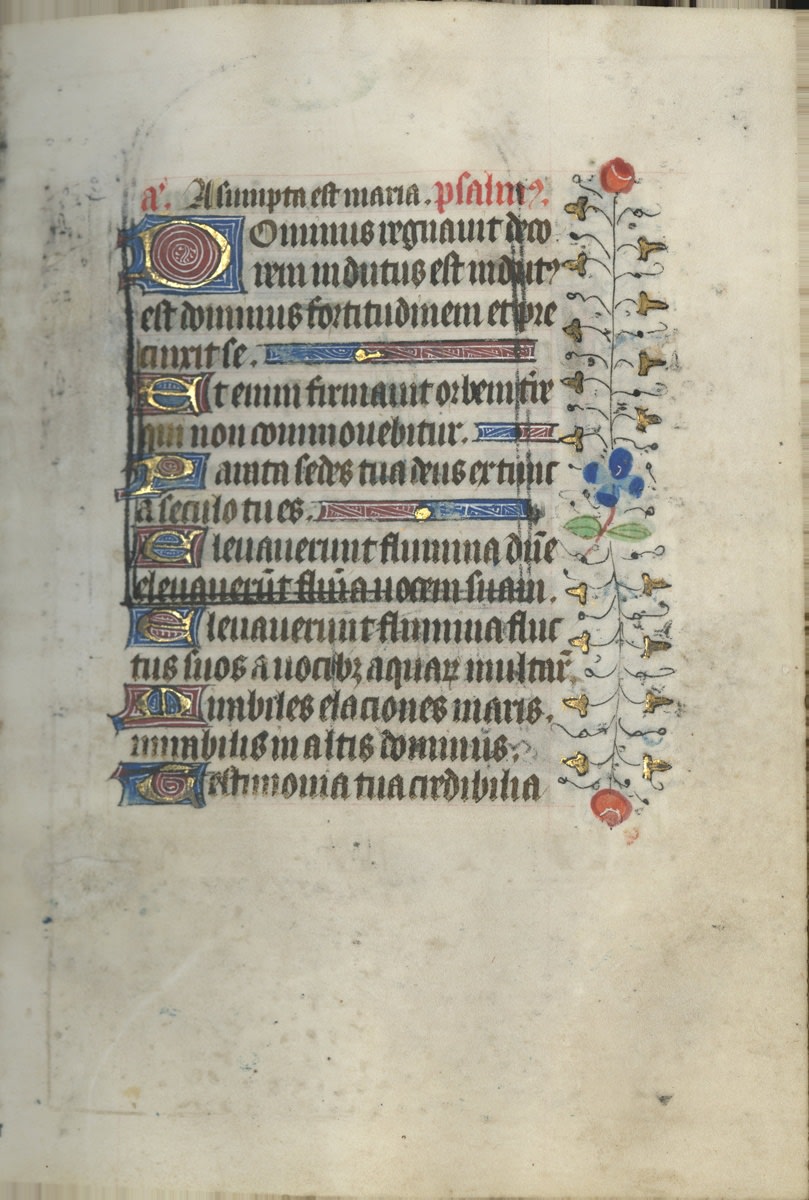 a. Asumpta est maria. psalmꝰ.
Dominus regnauit deco
rem indutus est indutꝰ
est dominus fortitudinem et pre
cinxit se.
Et enim firmauit orbem tirͤ
qui non commouebitur.
Parata sedes tua deus ex tunc
a seculo tu es.
Eleuauerunt flumina dn̄e
eleuauerūt flūīa uocem suam.
Eleuauerunt flumina fluc
tus suos a uocibꝫ aquaꝝ multaꝝ.
Mirabiles elaciones maris.
mirabilis in altis dominus.
Testimonia tua credibilia